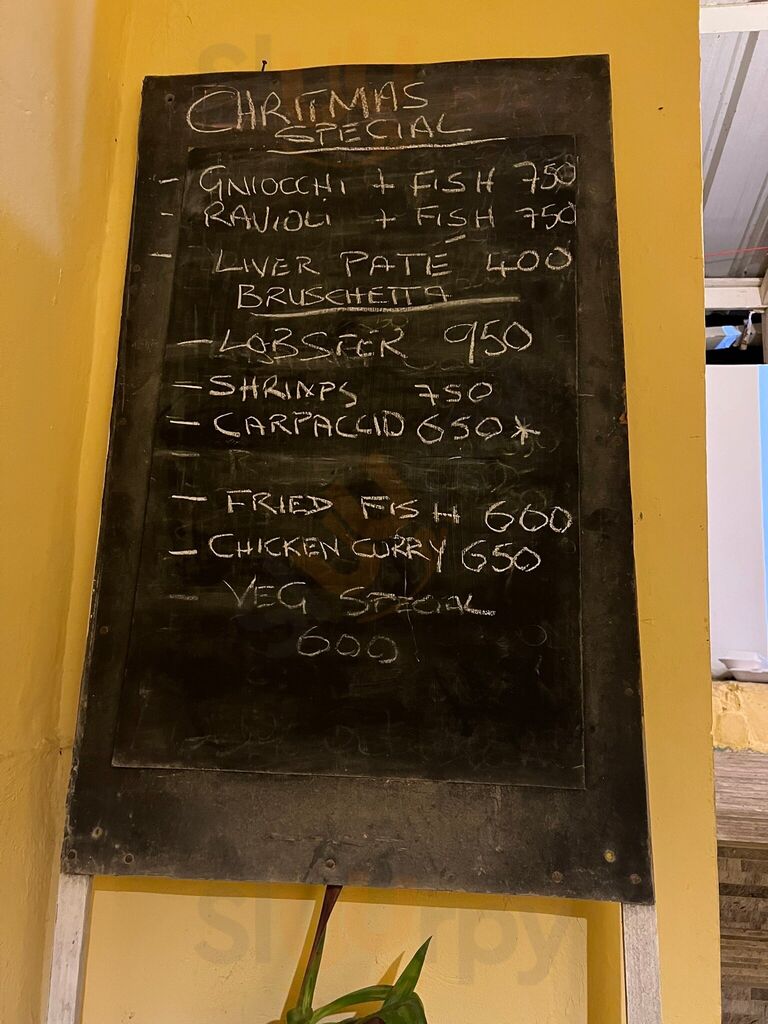 CHRITMAS
SPECIAL
- GNIOCCHI + FISH 750
- RAVIOLI + FISH 750
- LIVER PATÉ 400
BRUSCHETTA
- LOBSTER 950
- SHRIMPS 750
- CARPACCIO 650*
- FRIED FISH 600
- CHICKEN CURRY 650
- VEG SPECIAL
600
Slurpy